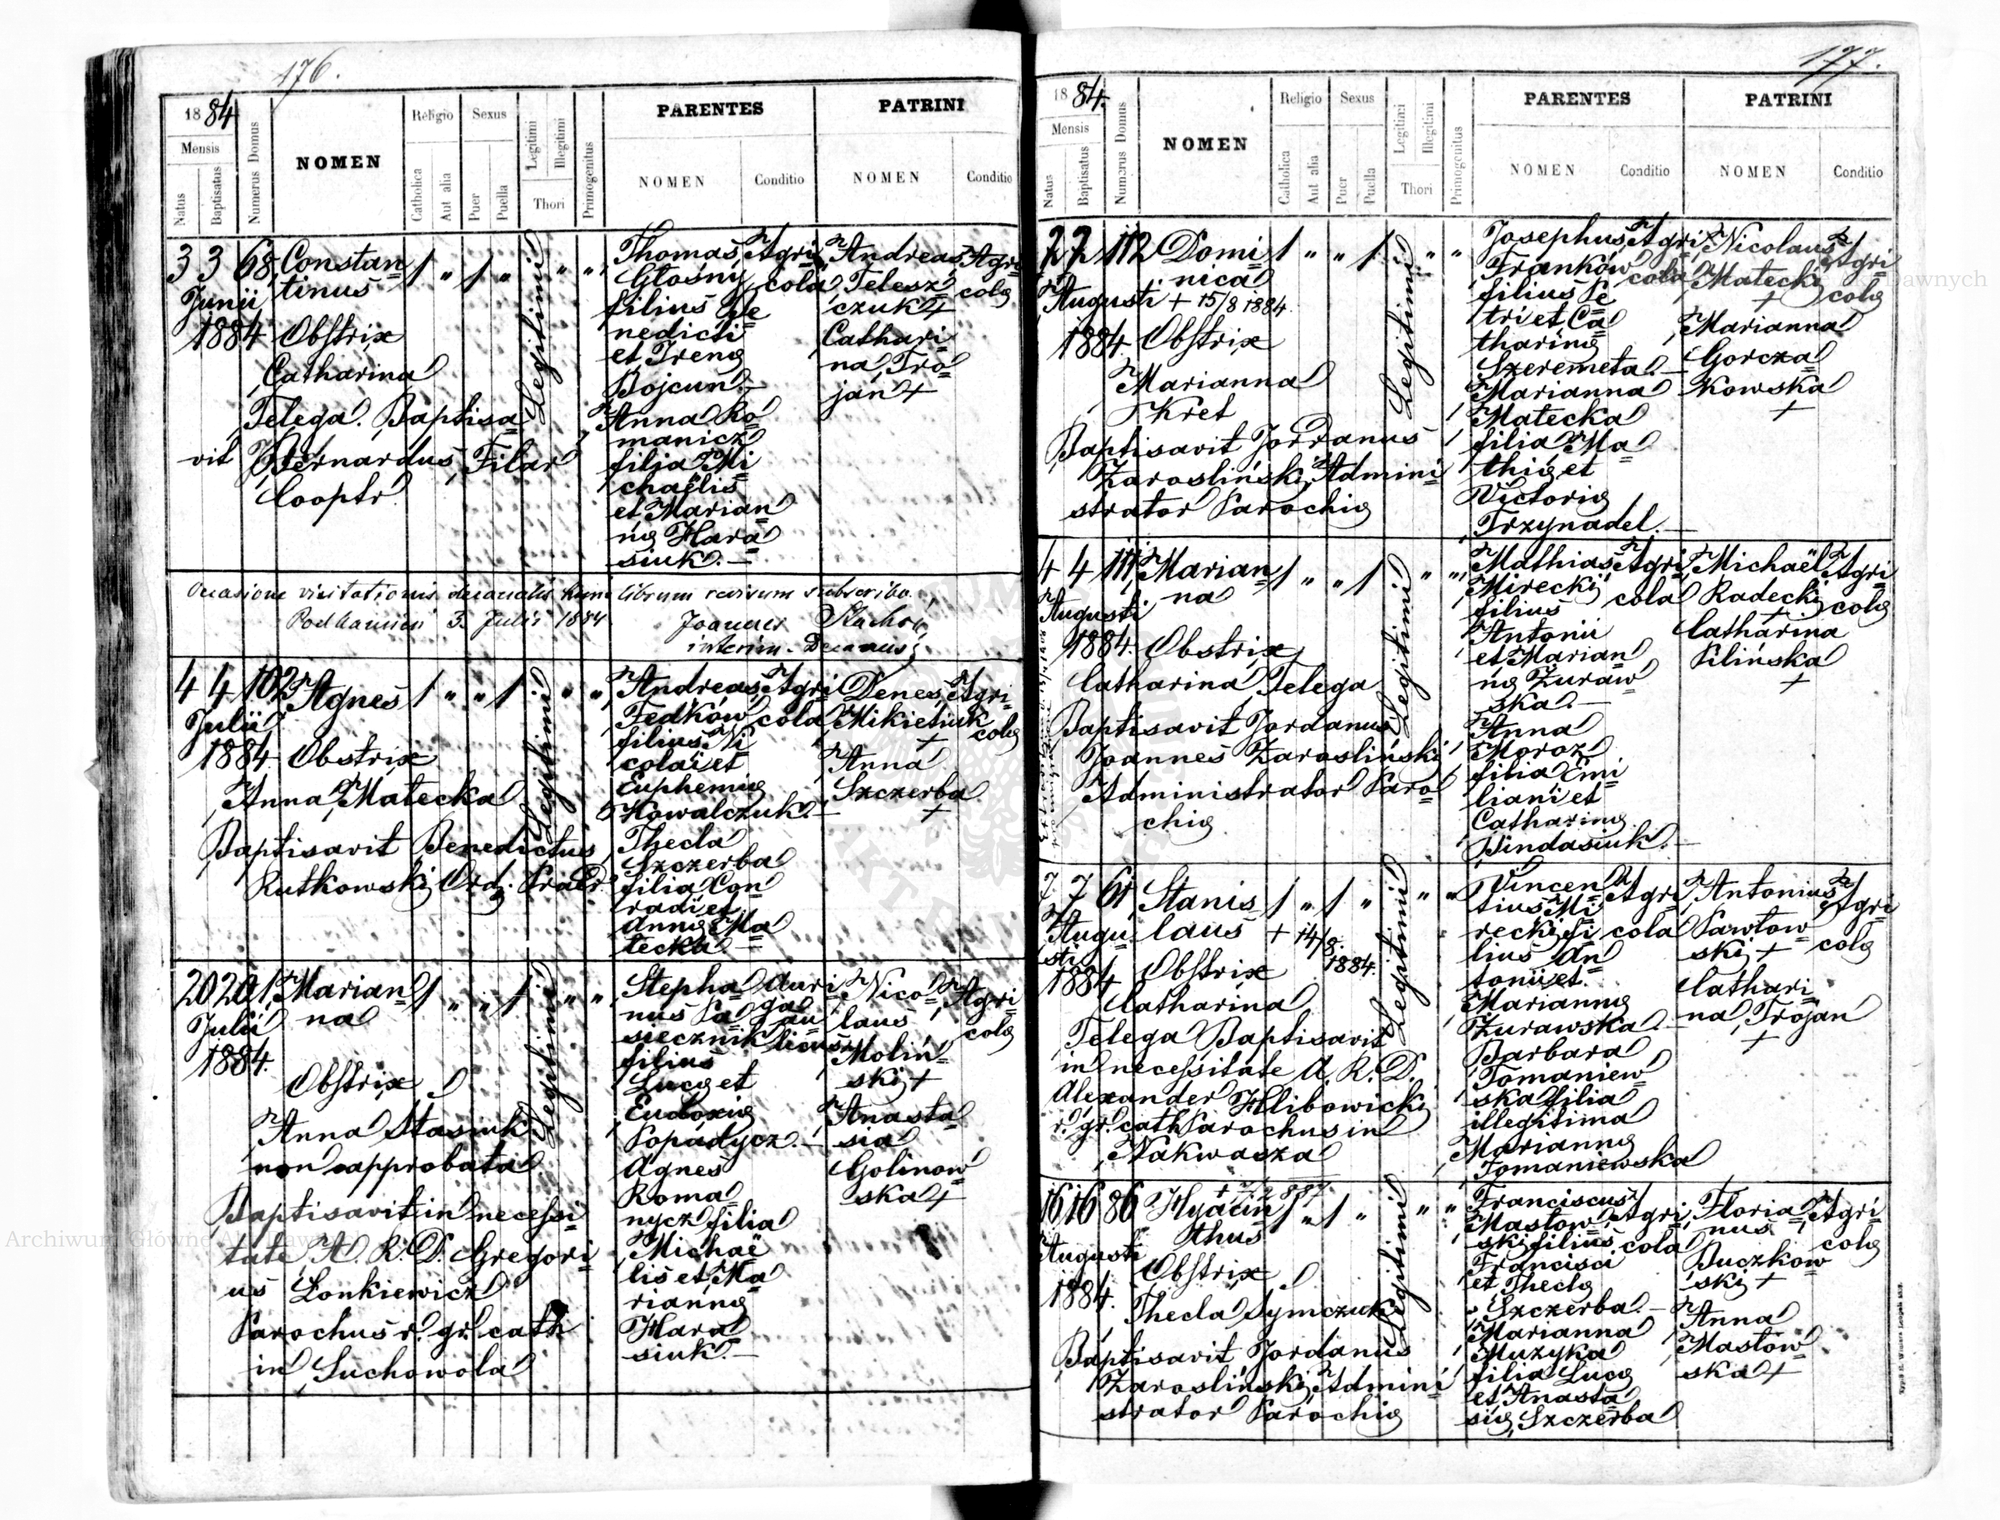 176.
1884
Mensis
Natus
Baptisatus
Numerus Domus
NOMEN
Religio
Catholica
Aut alia
Sexus
Puer
Puella
Legitimi
Illegitimi
Thori
Primogenitus
PARENTES
NOMEN
Conditio
PATRINI
NOMEN
Conditio
3 3 68 Constan=
tinus
Junii
1884 Obstrix
Catharina
Telega. Baptisa=
vit Bernardus Filar
Cooptr
Legitimi
Thomas Agri=
Głosny cola
filius Be=
nedicti
et Irenę
Bojcun.—
Anna Ro=
manicz
filia Mi=
chaëlis
et Marian=
nę Hara=
siuk.—
Andreas Agri=
Telesz= colę
czuk +
Cathari=
na Tro=
jan +
Occasione visitationis decanalis hunc librum revisum subscribo
Podkamień 3. Julii 1884 Joannes
interim. Decanus
4 4 102 Agnes
Julii
1884 Obstrix
Anna Matecka
Baptisavit Benedictus
Rutkowski Ord. Praed.
Legitimi
Andreas Agri=
Fedków cola
filius Ni=
colai et
Euphemię
Kowalczuk.—
Thecla
Szczerba
filia Con=
radi et
Annę Ma=
tecka.—
Denes Agri=
Mikietiuk colę
+
Anna
Szczerba
+
20 20 1 Marian=
na
Julii
1884.
Obstrix
Anna Stasiuk
non approbata
Baptisavit in necessi=
tate A. R. D. Gregori=
us Lonkiewicz
Parochus r. gr. cath
in Suchowola
Legitimi
Stepha= Auri=
nus Pa= gau=
siecznik licus
filius
Lucę et
Eudoxię
Popadycz.—
Agnes
Roma=
nycz filia
Michaë=
lis et Ma=
riannę
Hara=
siuk.—
Nico= Agri=
laus colę
Moliń=
ski +
Anasta=
sia
Golinow=
ska +
177.
1884.
Mensis
Natus
Baptisatus
Numerus Domus
NOMEN
Religio
Catholica
Aut alia
Sexus
Puer
Puella
Legitimi
Illegitimi
Thori
Primogenitus
PARENTES
NOMEN
Conditio
PATRINI
NOMEN
Conditio
2 2 112 Domi=
nica
Augusti + 15/8 1884.
1884 Obstrix
Marianna
Kret
Baptisavit Jordanus
Zarosliński Admini=
strator Parochię
Legitimi
Josephus Agri=
Franków cola
filius Pe=
tri et Ca=
tharinę
Szeremeta.—
Marianna
Matecka
filia Ma=
thię et
Victorię
Trzynadel.—
Nicolaus Agri=
Matecki colę
+
Marianna
Gorcza=
kowska
+
4 4 111 Marian=
na
Augusti
1884. Obstrix
Catharina Telega
Baptisavit Jordanus
Joannes Zarosliński
Administrator Paro=
chię
Legitimi
Mathias Agri=
Mirecki cola
filius
Antonii
et Marian=
nę Żuraw=
ska.—
Anna
Moroz
filia Emi=
liani et
Catharinę
Hindasiuk.—
Michaël Agri=
Radecki colę
+
Catharina
Pilińska
+
7 7 61 Stanis=
laus + 14/8.
1884.
Augu=
sti
1884 Obstrix
Catharina
Telega Baptisavit
in necessitate A. R. D.
Alexander Hlibowicki
r. gr. cath Parochus in
Nakwasza
Legitimi
Vincen= Agri=
tius Mi= cola
recki fi=
lius An=
tonii et
Mariannę
Żurawska.—
Barbara
Tomaniew=
ska filia
illegitima
Mariannę
Tomaniewska
Antonius Agri=
Pawtow= colę
ski +
Cathari=
na Trojan
+
16 16 86 Hyacin=
thus
Augusti
1884. Obstrix
Thecla Symczuk
Baptisavit Jordanus
Zarosliński Admini=
strator Parochię
Legitimi
Franciscus
Mastow= Agri=
ski filius cola
Francisci
et Theclę
Szczerba.—
Marianna
Muzyka
filia Lucę
et Anasta=
się Szczerba
Floria= Agri=
nus colę
Buczkow=
ski +
Anna
Mastow=
ska +
Archiwum Główne Akt Dawnych